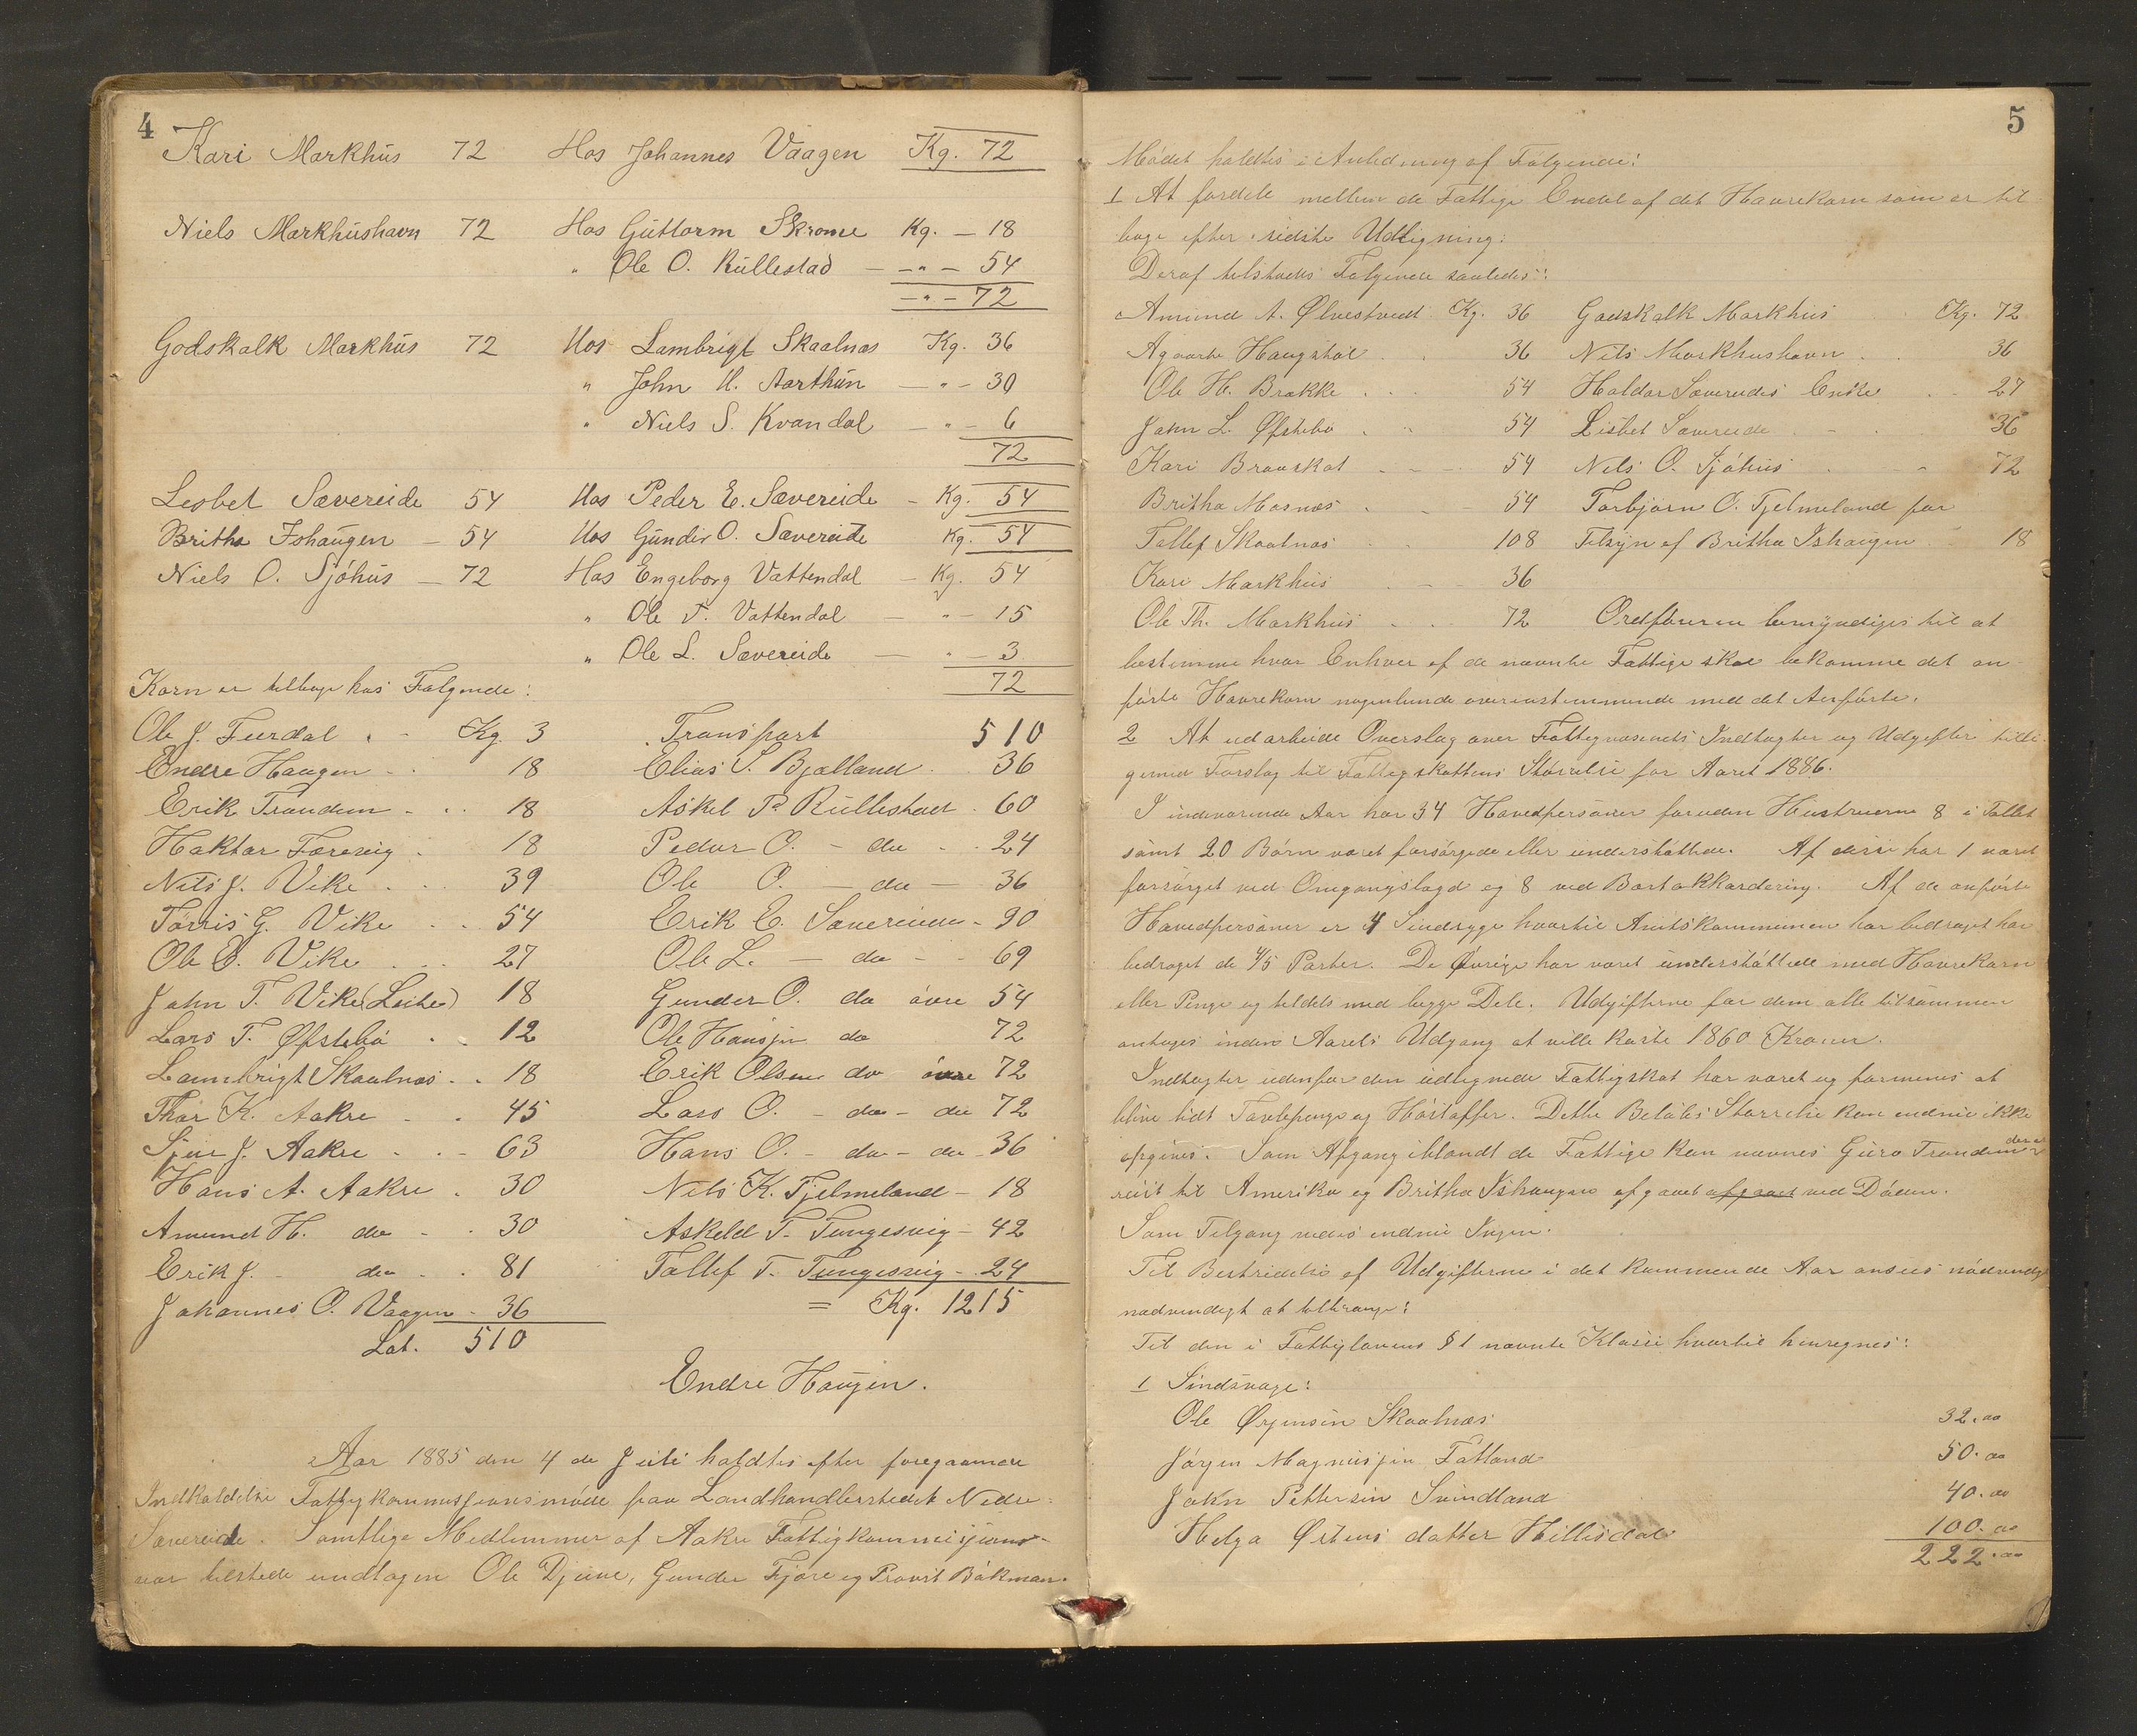 4
Kari Markhus 72 Hos Johannes Vaagen Kg. 72
Niels Markhushavn 72 Hos Guttorm Skrome Kg. — 18
" Ole O. Rullestad — -"- 54
-"- 72
Godskalk Markhus 72 Hos Lambrigt Skaalnæs Kg. 36
" John H. Aarthun -"- 30
" Niels S. Kvandal -"- 6
72
Lesbet Sævereide 54 Hos Peder E. Sævereide - Kg. 54
Britha Ishaugen - 54 Hos Gunder O. Sævereide Kg. 54
Niels O. Sjøhus - 72 Hos Engeborg Vattendal - Kg. 54
" Ole T. Vattendal — "- 15
" Ole L. Sævereide — "- 3
72
Korn er tilbage hos Følgende:
Ole J. Furdal . - Kg. 3 Transport 510
Endre Haugen . . 18 Elias S. Bjælland . 36
Erik Trandum . . 18 Askel P. Rullestad . 60
Haktor Færesvig . 18 Peder O. - do - . 24
Nils J. Vike . . . 39 Ole O. — do — 36
Tørris G. Vike . . 54 Erik E. Sævereide - 90
Ole E. Vike . . . 27 Ole L. — do - - 69
John T. Vike (Leite) 18 Gunder O. do øvre 54
Lars T. Øfstebø . . 12 Ole Hansjen do 72
Lambrigt Skaalnæs . . 18 Erik Olsen do øvre 72
Thor K. Aakre . . 45 Lars O. - do - do 72
Sjur J. Aakre . . - 63 Hans O. - do - do - 36
Hans A. Aakre . 30 Nils K. Tjelmeland - 18
Amund H. do - . 30 Askeld T. Tungesvig - 42
Erik J. - do . . 81 Tollef T. Tungesvig - 24
Johannes O. Vaagen - 36 = Kg. 1215
Lat. 510
Endre Haugen.
Aar 1885 den 4 de Juli holdtes efter foregaaende
Indkaldelse Fattigkommissionsmøde paa Landhandlerstedet Nedre
Sævereide. Samtlige Medlemmer af Aakre Fattigkommisjon
var tilstede undtagen Ole Djuve, Gunder Fjære og Provst Bøkman.
5
Mødet holdtes i Anledning af Følgende:
1 At fordele mellem de Fattige Endel af det Havrekorn som er til
bage efter sidste Udligning:
Deraf tilstodes Følgende saaledes:
Amund A. Ølvestvedt. Kg. 36 Godskalk Markhus Kg. 72
Agaarte Haugstøl . . 36 Nils Markhushavn . . 36
Ole H. Brække . . . 54 Haldor Sævereides Enke . . 27
John L. Øfstebø . . 54 Lisbet Sævereide . - . 36
Kari Bravskat . - - 54 Nils O. Sjøhus . - 72
Britha Mosnæs . - 54 Torbjørn O. Tjelmeland for
Tollef Skaalnæs . . 108 Tilsyn af Britha Ishaugen 18
Kari Markhus . - 36
Ole Th. Markhus . . 72 Ordføreren bemyndiges til at
bestemme hvor Enhver af de nævnte Fattige skal bekomme det an-
førte Havrekorn nogenlunde overenstemmende med det Anførte.
2 At udarbeide Overslag over Fattigvæsenets Indtægter og Udgifter tilli-
gemed Forslag til Fattigskattens Størrelse for Aaret 1886.
I indeværende Aar har 34 Hovedpersoner foruden Hustruerne 8 i Tallet
samt 20 Børn været forsørgede eller understøttede. Af disse har 1 været
forsørget ved Omgangslægd og 8 ved Bortakkordering. Af de anførte
Hovedpersoner er 4 Sindsyge hvortil Amtskommunen har bidraget har
bedraget de 4/5 Parter. De Øvrige har været understøttede med Havrekorn
eller Penge og tildels med begge Dele. Udgifterne for dem alle tilsammen
antages inden Aarets Udgang at ville koste 1860 Kroner.
Indtægter udenfor den udlignede Fattigskat har været og formenes at
blive lidt Tavlepenge og Høstoffer. Dette Beløbs Størrelse kan endnu ikke
opgives. Som Afgang iblandt de Fattige kan nævnes Guro Trandum der er
reist til Amerika og Britha Ishaugen afgaaet afgaaet ved Døden.
Som Tilgang vides endnu Ingen.
Til Bestridelse af Udgifterne i det kommende Aar ansees nødvendig
nødvendigt at tiltrænge:
Til den i Fattiglovens § 1 nævnte Klasse hvortil henregnes:
1 Sindsvage:
Ole Ørjensen Skaalnæs 32.oo
Jørgen Magnusjen Fatland 50.oo
John Pettersen Svindland 40.oo
Helga Østens datter Hillesdal 100.oo
222.oo